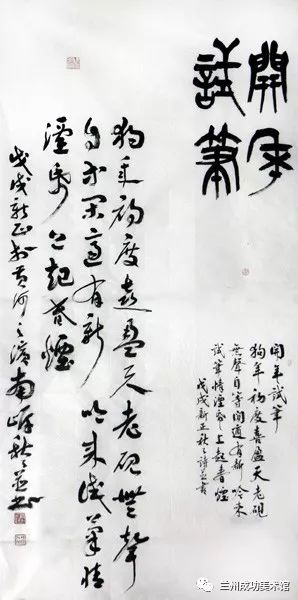 開年
試筆
狗年初度喜盈天老硯無聲
自等閑適有新吟來試筆情
湮紙上起春煙
戊戌新正於黃河之濱南
開年試筆
狗年初度喜盈天老硯
無聲自等閑適有新吟來
試筆情湮紙上起春煙
戊戌新正秋之詩並書
兰州成功美术馆